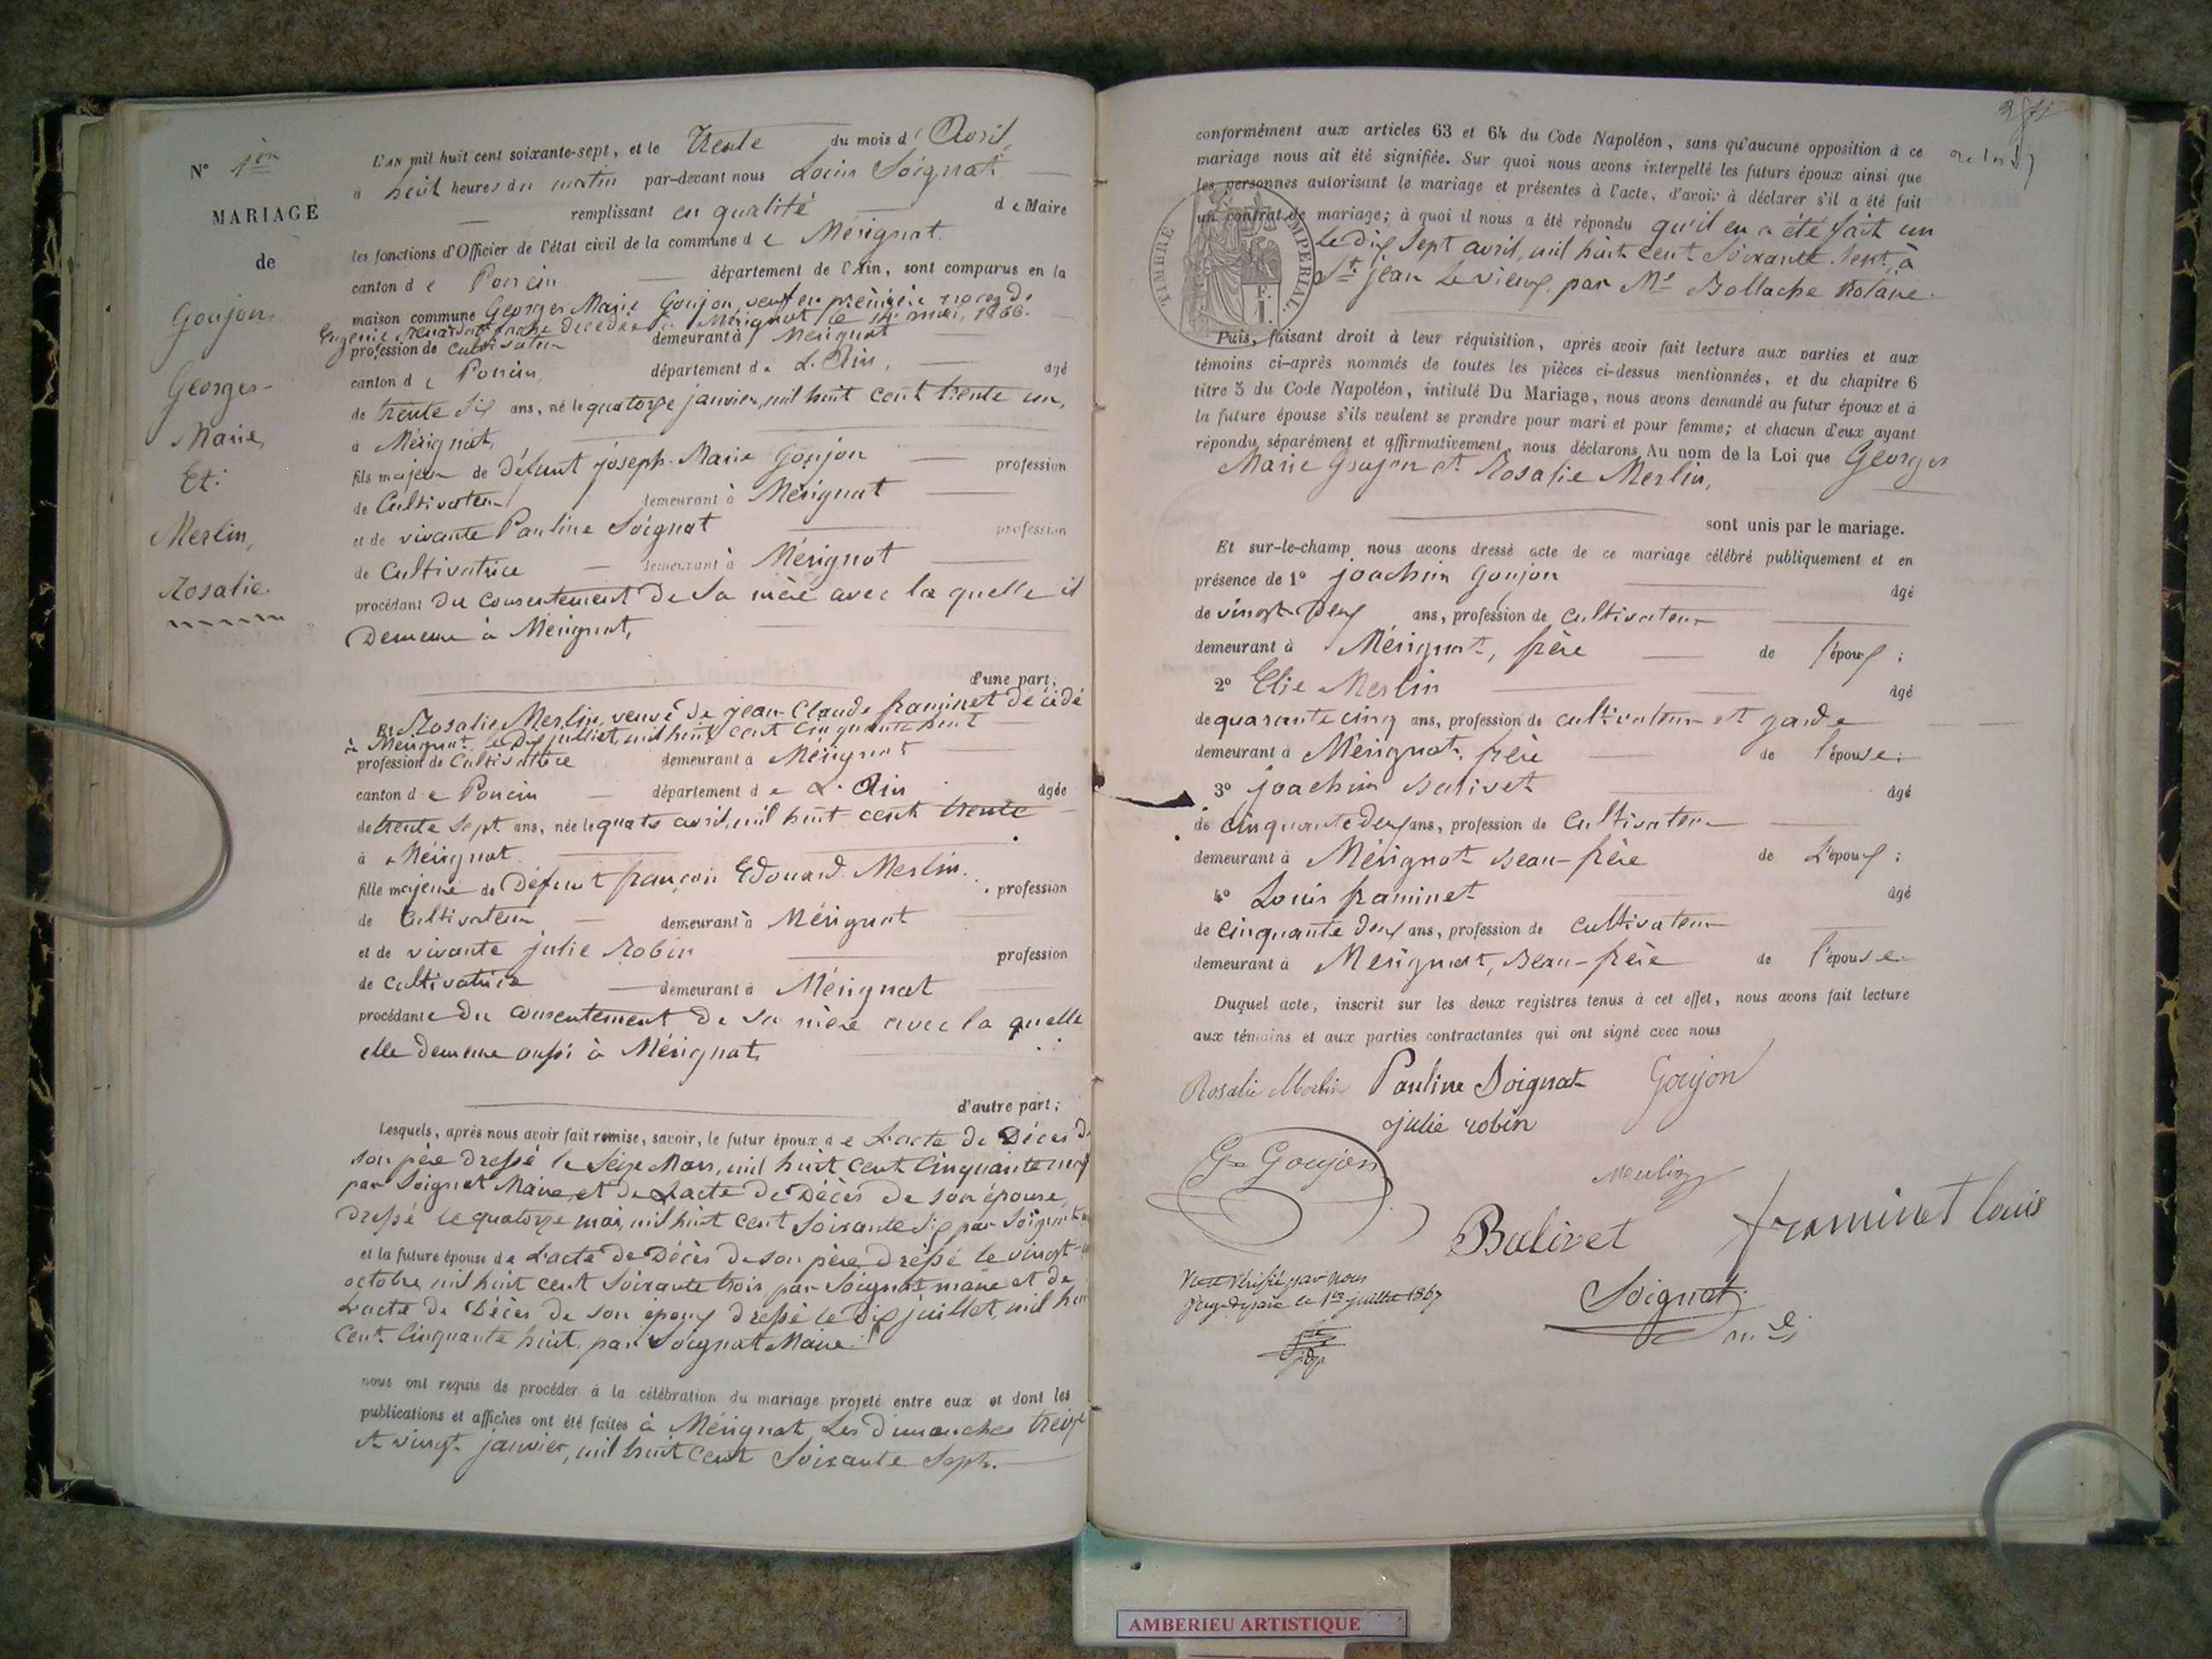 N° 1er
MARIAGE
de
Goujon
Georges-
Marie
Et
Merlin,
Rosalie.
L'AN mil huit cent soixante-sept, et le trente du mois d'Avril,
à huit heures du matin par-devant nous Louis Soignat
remplissant en qualité de Maire
les fonctions d'Officier de l'état civil de la commune de Mérignat
canton de Poncin département de l'Ain, sont comparus en la
maison commune Georges Marie Goujon, veuf en première noces de
Eugénie décédée à Mérignat le 14 mai, 1866.
profession de cultivateur demeurant à Mérignat
canton de Poncin département de L'Ain, âgé
de trente six ans, né le quatorze janvier, mil huit cent trente un,
à Mérignat,
fils majeur de défunt joseph-Marie Goujon profession
de Cultivateur demeurant à Mérignat
et de vivante Pauline Soignat profession
de Cultivatrice demeurant à Mérignat
procédant du consentement de sa mère avec la quelle il
Demeure à Mérignat,
d'une part;
Et Rosalie Merlin, veuve de jean-Claude framinet décédé
à Mérignat, le dix juillet, mil huit cent cinquante huit
profession de Cultivatrice demeurant à Mérignat
canton de Poncin département de L'Ain âgée
de trente sept ans, née le quatre avril, mil huit cent trente
à Mérignat
fille majeure de Défunt françois Edouard Merlin. profession
de Cultivateur demeurant à Mérignat
et de vivante julie Robin profession
de cultivatrice demeurant à Mérignat
procédante du consentement de sa mère avec la quelle
elle demeure aussi à Mérignat
d'autre part;
Lesquels, après nous avoir fait remise, savoir, le futur époux de L'acte de Décès de
son père dressé le Seize Mars, mil huit cent Cinquante neuf
par Soignat Maire, et de L'acte de Décès de son épouse
dressé le quatorze mai, mil huit cent soixante six par Soignat
et la future épouse de L'acte de Décès de son père dressé le vingt-
octobre, mil huit cent Soixante trois, par Soignat maire et de
L'acte de Décès de son époux dressé le Dix juillet, mil huit
cent Cinquante huit, par Soignat Maire.
nous ont requis de procéder à la célébration du mariage projeté entre eux et dont les
publications et affiches ont été faites à Mérignat Les dimanches treize
et vingt janvier, mil huit cent Soixante Sept.
conformément aux articles 63 et 64 du Code Napoléon, sans qu'aucune opposition à ce
mariage nous ait été signifiée. Sur quoi nous avons interpellé les futurs époux ainsi que
les personnes autorisant le mariage et présentes à l'acte, d'avoir à déclarer s'il a été fait
un contrat de mariage; à quoi il nous a été répondu qu'il en a été fait un
le dix Sept avril, mil huit cent Soixante Sept, à
St jean Le vieux, par Me Bollache Notaire.
TIMBRE IMPERIAL.
Puis, faisant droit à leur réquisition, après avoir fait lecture aux parties et aux
témoins ci-après nommés de toutes les pièces ci-dessus mentionnées, et du chapitre 6
titre 5 du Code Napoléon, intitulé Du Mariage, nous avons demandé au futur époux et à
la future épouse s'ils veulent se prendre pour mari et pour femme; et chacun d'eux ayant
répondu séparément et affirmativement, nous déclarons Au nom de la Loi que Georges
Marie Goujon et Rosalie Merlin,
sont unis par le mariage.
Et sur-le-champ nous avons dressé acte de ce mariage célébré publiquement et en
présence de 1° joachim Goujon âgé
de vingt-deux ans, profession de cultivateur
demeurant à Mérignat, frère de l'époux;
2° Elie Merlin âgé
de quarante cinq ans, profession de cultivateur et garde
demeurant à Mérignat, frère de l'épouse;
3° joachim Balivet âgé
de cinquante deux ans, profession de Cultivateur
demeurant à Mérignat Beau-frère de L'époux;
4° Louis framinet âgé
de cinquante deux ans, profession de cultivateur
demeurant à Mérignat, Beau-frère de l'épouse
Duquel acte, inscrit sur les deux registres tenus à cet effet, nous avons fait lecture
aux témoins et aux parties contractantes qui ont signé avec nous
Rosalie Merlin Pauline Soignat Goujon
julie robin
Ge Goujon Merlin
Balivet framinet louis
Vérifié par nous
juge de paix le 1er juillet 1867
Soignat
AMBERIEU ARTISTIQUE